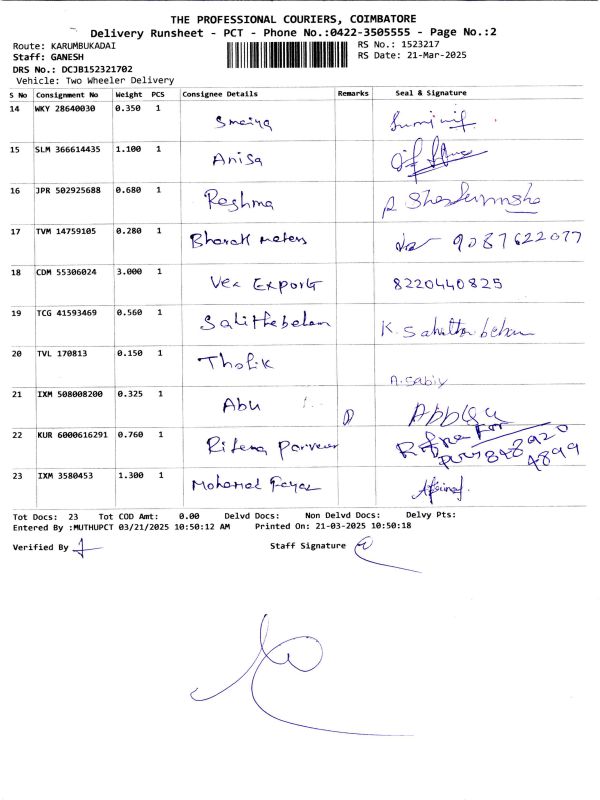 THE PROFESSIONAL COURIERS, COIMBATORE
Delivery Runsheet - PCT - Phone No.:0422-3505555 - Page No.:2
Route: KARUMBUKADAI RS No.: 1523217
Staff: GANESH RS Date: 21-Mar-2025
DRS No.: DCJB152321702
Vehicle: Two Wheeler Delivery
S No Consignment No Weight PCS Consignee Details Remarks Seal & Signature
14 WKY 28640030 0.350 1
15 SLM 366614435 1.100 1 Anisa
16 JPR 502925688 0.680 1 Reshma
17 TVM 14759105 0.280 1 Bharat meters 9087622077
18 CDM 55306024 3.000 1 Vee Exports 8220440825
19 TCG 41593469 0.560 1 K.
20 TVL 170813 0.150 1 Thofik A. Sabiy
21 IXM 508008200 0.325 1 Abu
22 KUR 6000616291 0.760 1
23 IXM 3580453 1.300 1 Mohamed Fayaz
Tot Docs: 23 Tot COD Amt: 0.00 Delvd Docs: Non Delvd Docs: Delvy Pts:
Entered By :MUTHUPCT 03/21/2025 10:50:12 AM Printed On: 21-03-2025 10:50:18
Verified By Staff Signature